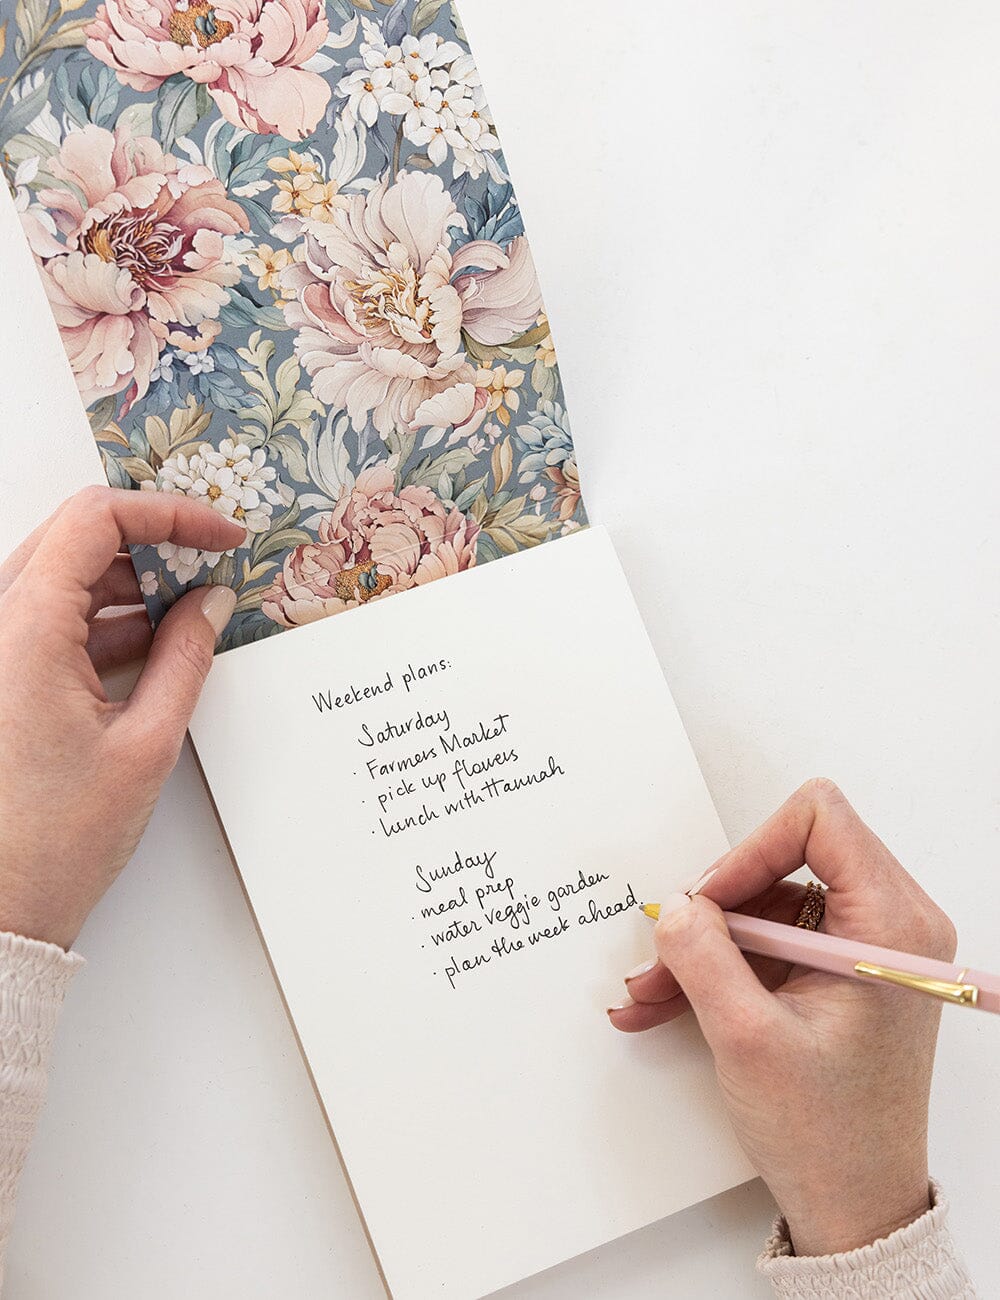 Weekend plans:
Saturday
· Farmers Market
· pick up flowers
· lunch with Hannah
Sunday
· meal prep
· water veggie garden
· plan the week ahead.